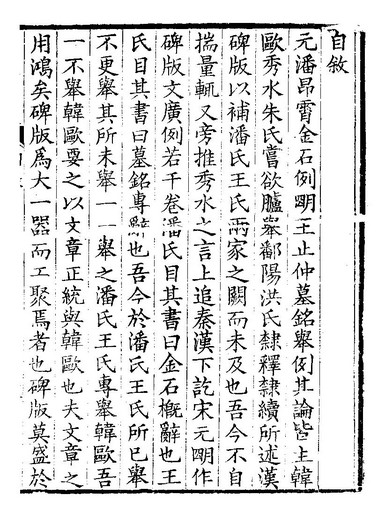 自敘
元潘昂霄金石例明王止仲墓銘舉例其論皆上韓
歐秀水朱氏嘗欲臚舉鄱陽洪氏隸釋隸續所述漢
碑版以補潘氏王氏兩家之闕而未及也吾今不自
揣量輒又旁推秀水之言上追秦漢下訖宋元明作
碑版文廣例若干卷潘氏目其書曰金石槪辭也王
氏目其書曰墓銘專辭也吾今於潘氏王氏所已舉
不更舉其所未舉一一舉之潘氏王氏專舉韓歐吾
一不舉韓歐要之以文章正統與韓歐也夫文章之
用鴻矣碑版爲大一器而工聚焉者也碑版莫盛於